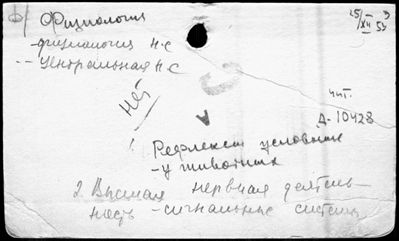 б) Физиология
- физиология н-с
-- центральная н-с
Нет
чит.
Д-10428
1 Рефлексы условные
- у животных
2. Высшая нервная деятель-
ность - сигнальные системы